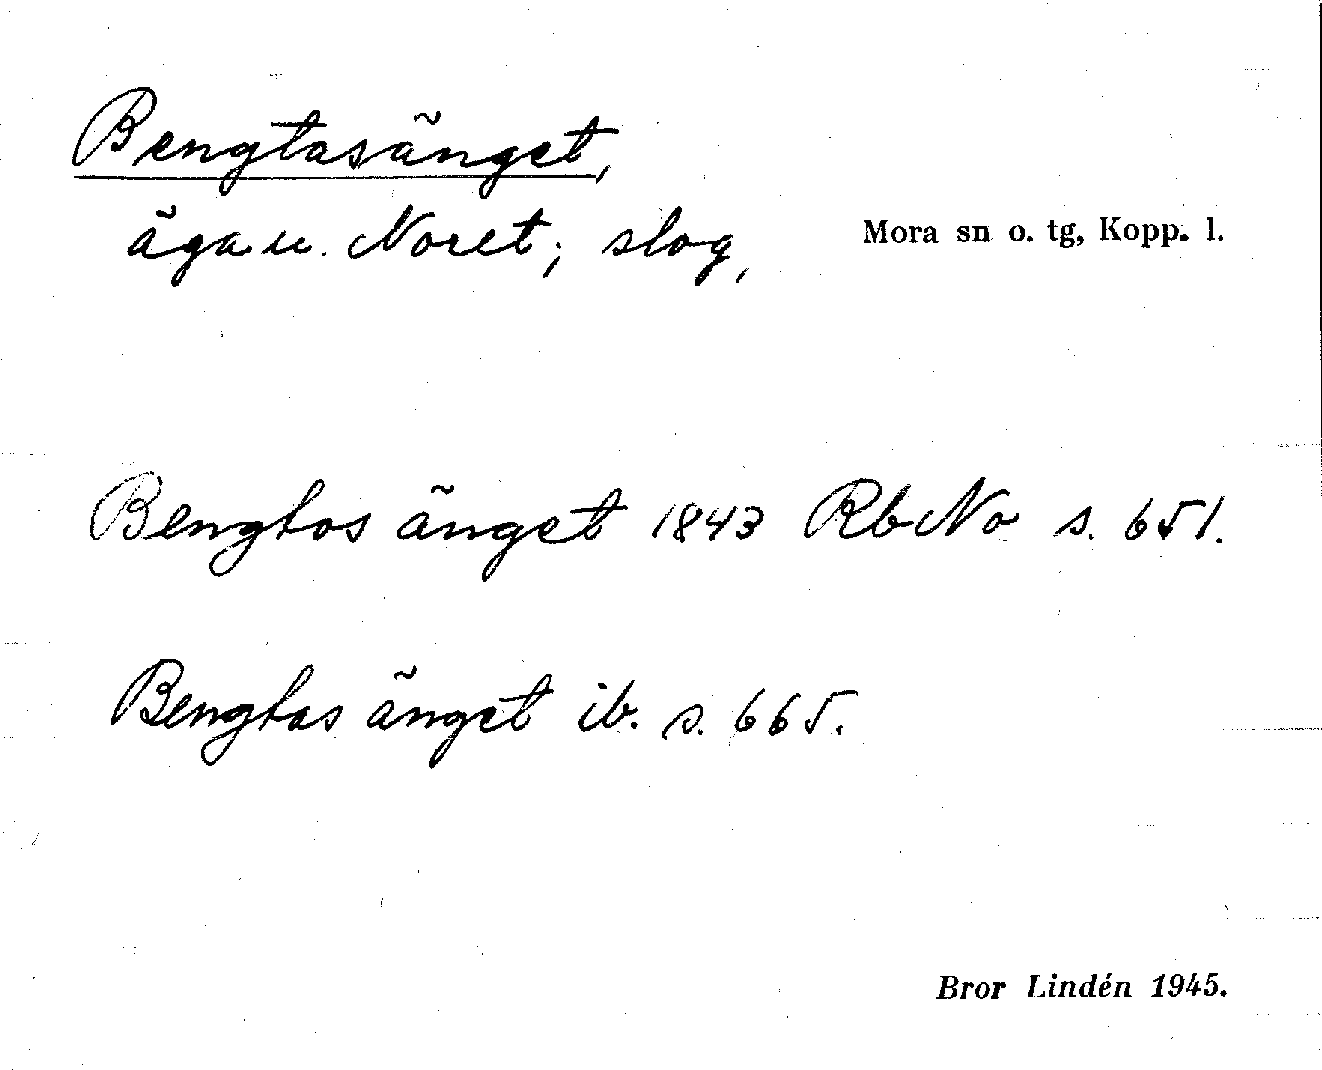 Bengtasänget,
äga u. Noret; slog, Mora sn o. tg, Kopp. l.
Bengtos änget 1843 RbNo s. 651.
Bengtas änget ib. s. 665.
Bror Lindén 1945.